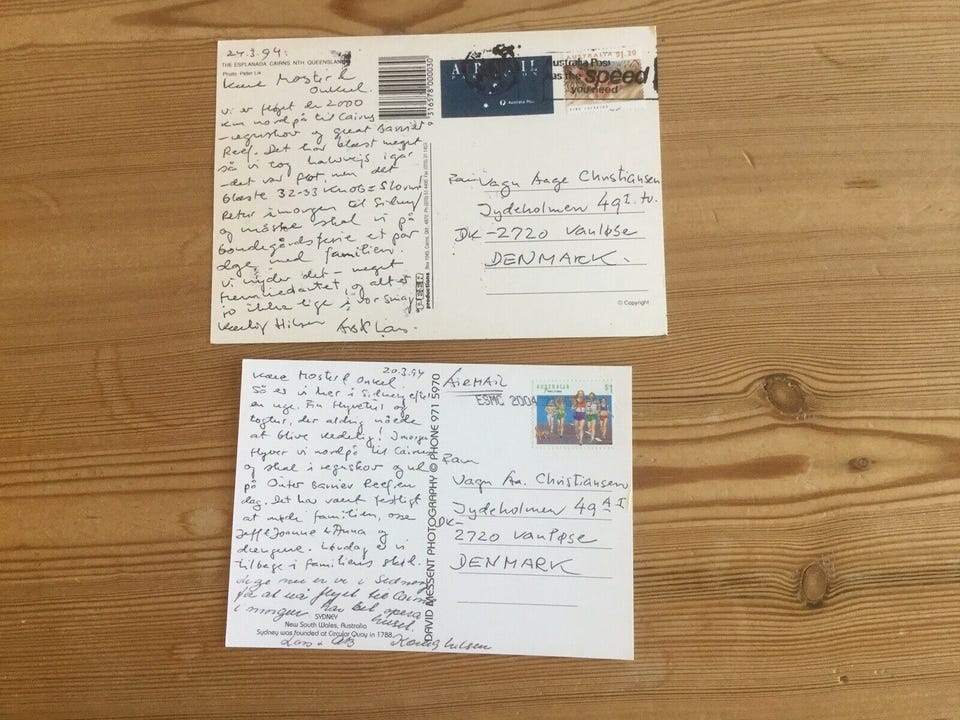 24.3.94.
THE ESPLANADA, CAIRNS. NTH. QUEENSLAND
Photo: Peter Lik
Kære Moster &
Onkel.
Vi er fløjet de 2000
km nordpå til Cairns
- regnskov og great Barrier
Reef. Det har blæst meget
så vi tog halvvejs igår
- det var flot, men det
blæste 32-33 knob =
Retur imorgen til Sidney
og måske skal vi på
bondegårdsferie et par
dage med familien.
Vi nyder det - meget
og alt er
jo ikke lige i vor smag
Kærlig Hilsen
9 316578 000030
productions
AIR MAIL
Australia Post
Australia Post
has the speed
you need
AUSTRALIA $1.20
Fam Vagn Aage Christiansen
Jydeholmen 49 I. tv.
DK - 2720 Vanløse
DENMARK.
© Copyright
20.3.94
Kære Moster & Onkel.
Så er vi her i Sidney efter
en uge. En flyvetur og
togtur, der aldrig nåede
at blive kedelig! Imorgen
flyver vi nordpå til Cairns
og skal i regnskov og ud
på Outer Barrier Reef en
dag. Det har været festligt
at møde familien, også
Jeff & Joanne & Anna og
drengene. Lørdag er vi
tilbage i familiens skød.
lige nu er vi i Sydney
for at nå flyet til Cairns
i morgen har set opera
huset.
SYDNEY
New South Wales, Australia
Sydney was founded at Circular Quay in 1788.
Kærlig hilsen
DAVID MESSENT PHOTOGRAPHY © PHONE 971 5970
AIRMAIL
ESMC 2004
AUSTRALIA $1
Fam
Vagn Aa. Christiansen
Jydeholmen 49 A I
DK-
2720 Vanløse
DENMARK